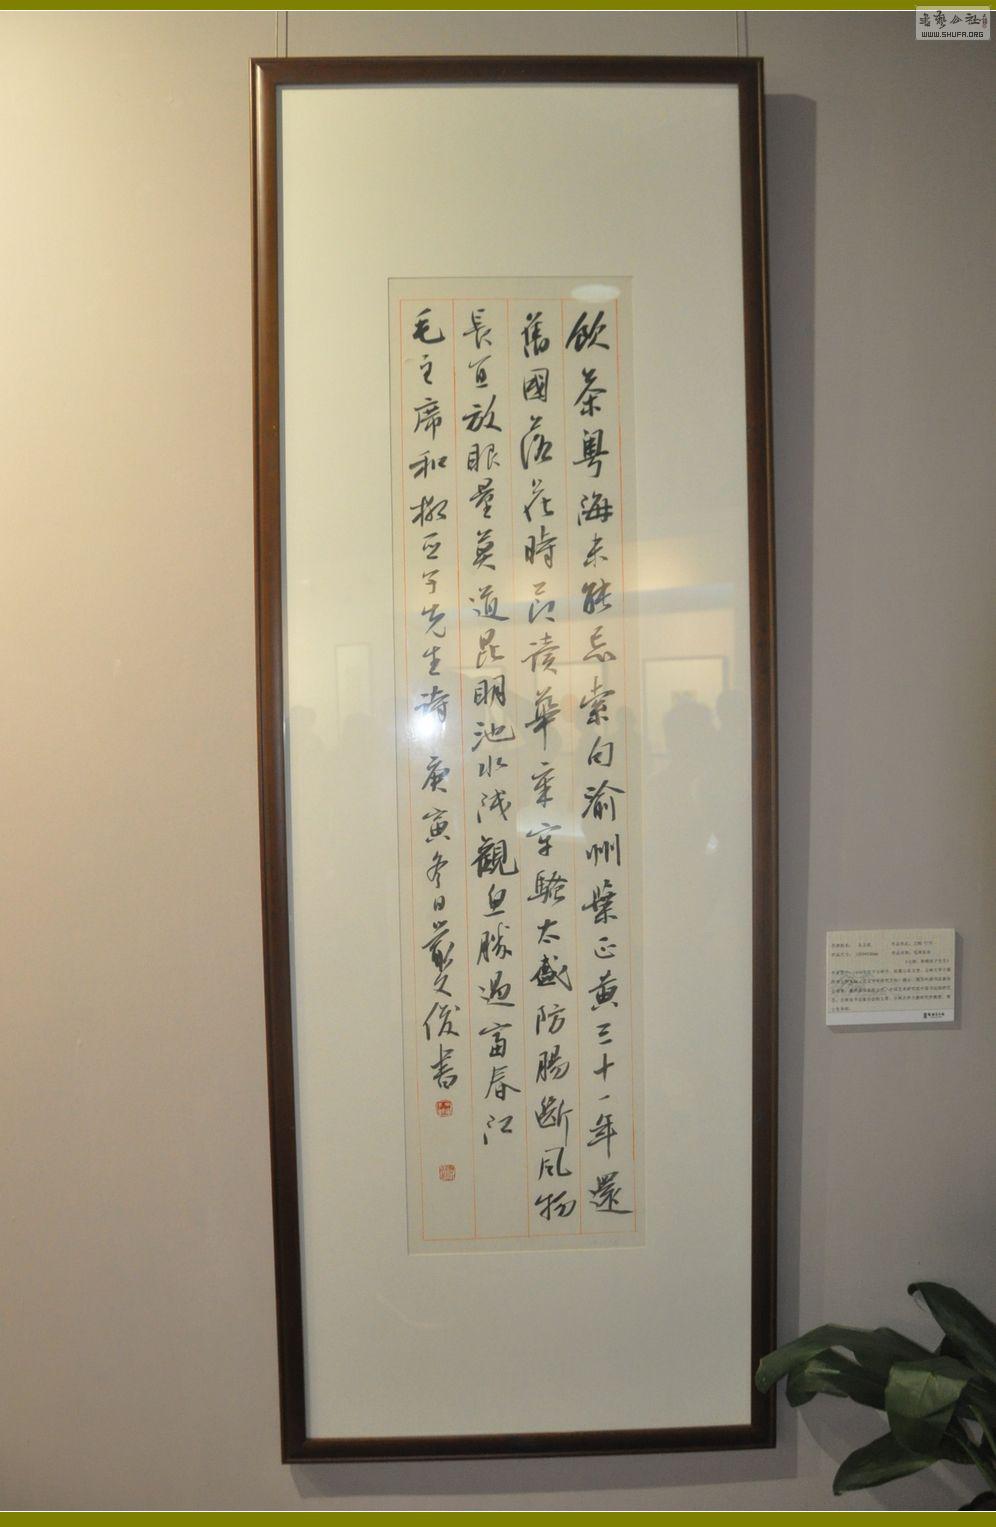 飲茶粤海未能忘索句渝州葉正黄三十一年還
舊國落花時節读華章牢騷太盛防腸斷风物
長宜放眼量莫道昆明池水浅觀魚勝過富春江
毛主席和柳亞子先生詩 庚寅冬日叢文俊書
書藝公社
WWW.SHUFA.ORG